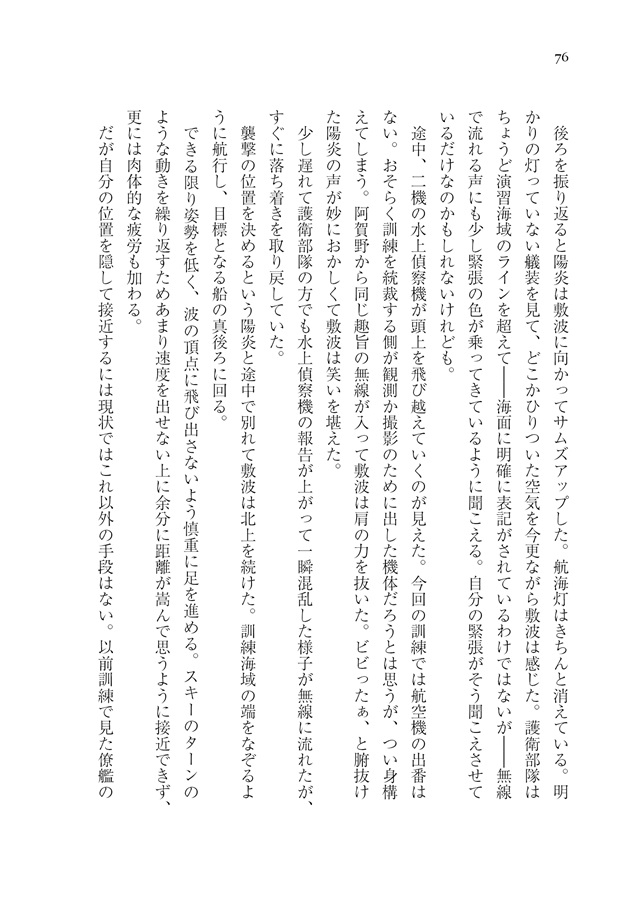 76
後ろを振り返ると陽炎は敷波に向かってサムズアップした。航海灯はきちんと消えている。明
かりの灯っていない艤装を見て、どこかひりついた空気を今更ながら敷波は感じた。護衛部隊は
ちょうど演習海域のラインを超えて――海面に明確に表記がされているわけではないが――無線
で流れる声にも少し緊張の色が乗ってきているように聞こえる。自分の緊張がそう聞こえさせて
いるだけなのかもしれないけれども。
途中、二機の水上偵察機が頭上を飛び越えていくのが見えた。今回の訓練では航空機の出番は
ない。おそらく訓練を統裁する側が観測か撮影のために出した機体だろうとは思うが、つい身構
えてしまう。阿賀野から同じ趣旨の無線が入って敷波は肩の力を抜いた。ビビったぁ、と腑抜け
た陽炎の声が妙におかしくて敷波は笑いを堪えた。
少し遅れて護衛部隊の方でも水上偵察機の報告が上がって一瞬混乱した様子が無線に流れたが、
すぐに落ち着きを取り戻していた。
襲撃の位置を決めるという陽炎と途中で別れて敷波は北上を続けた。訓練海域の端をなぞるよ
うに航行し、目標となる船の真後ろに回る。
できる限り姿勢を低く、波の頂点に飛び出さないよう慎重に足を進める。スキーのターンの
ような動きを繰り返すためあまり速度を出せない上に余分に距離が嵩んで思うように接近できず、
更には肉体的な疲労も加わる。
だが自分の位置を隠して接近するには現状ではこれ以外の手段はない。以前訓練で見た僚艦の